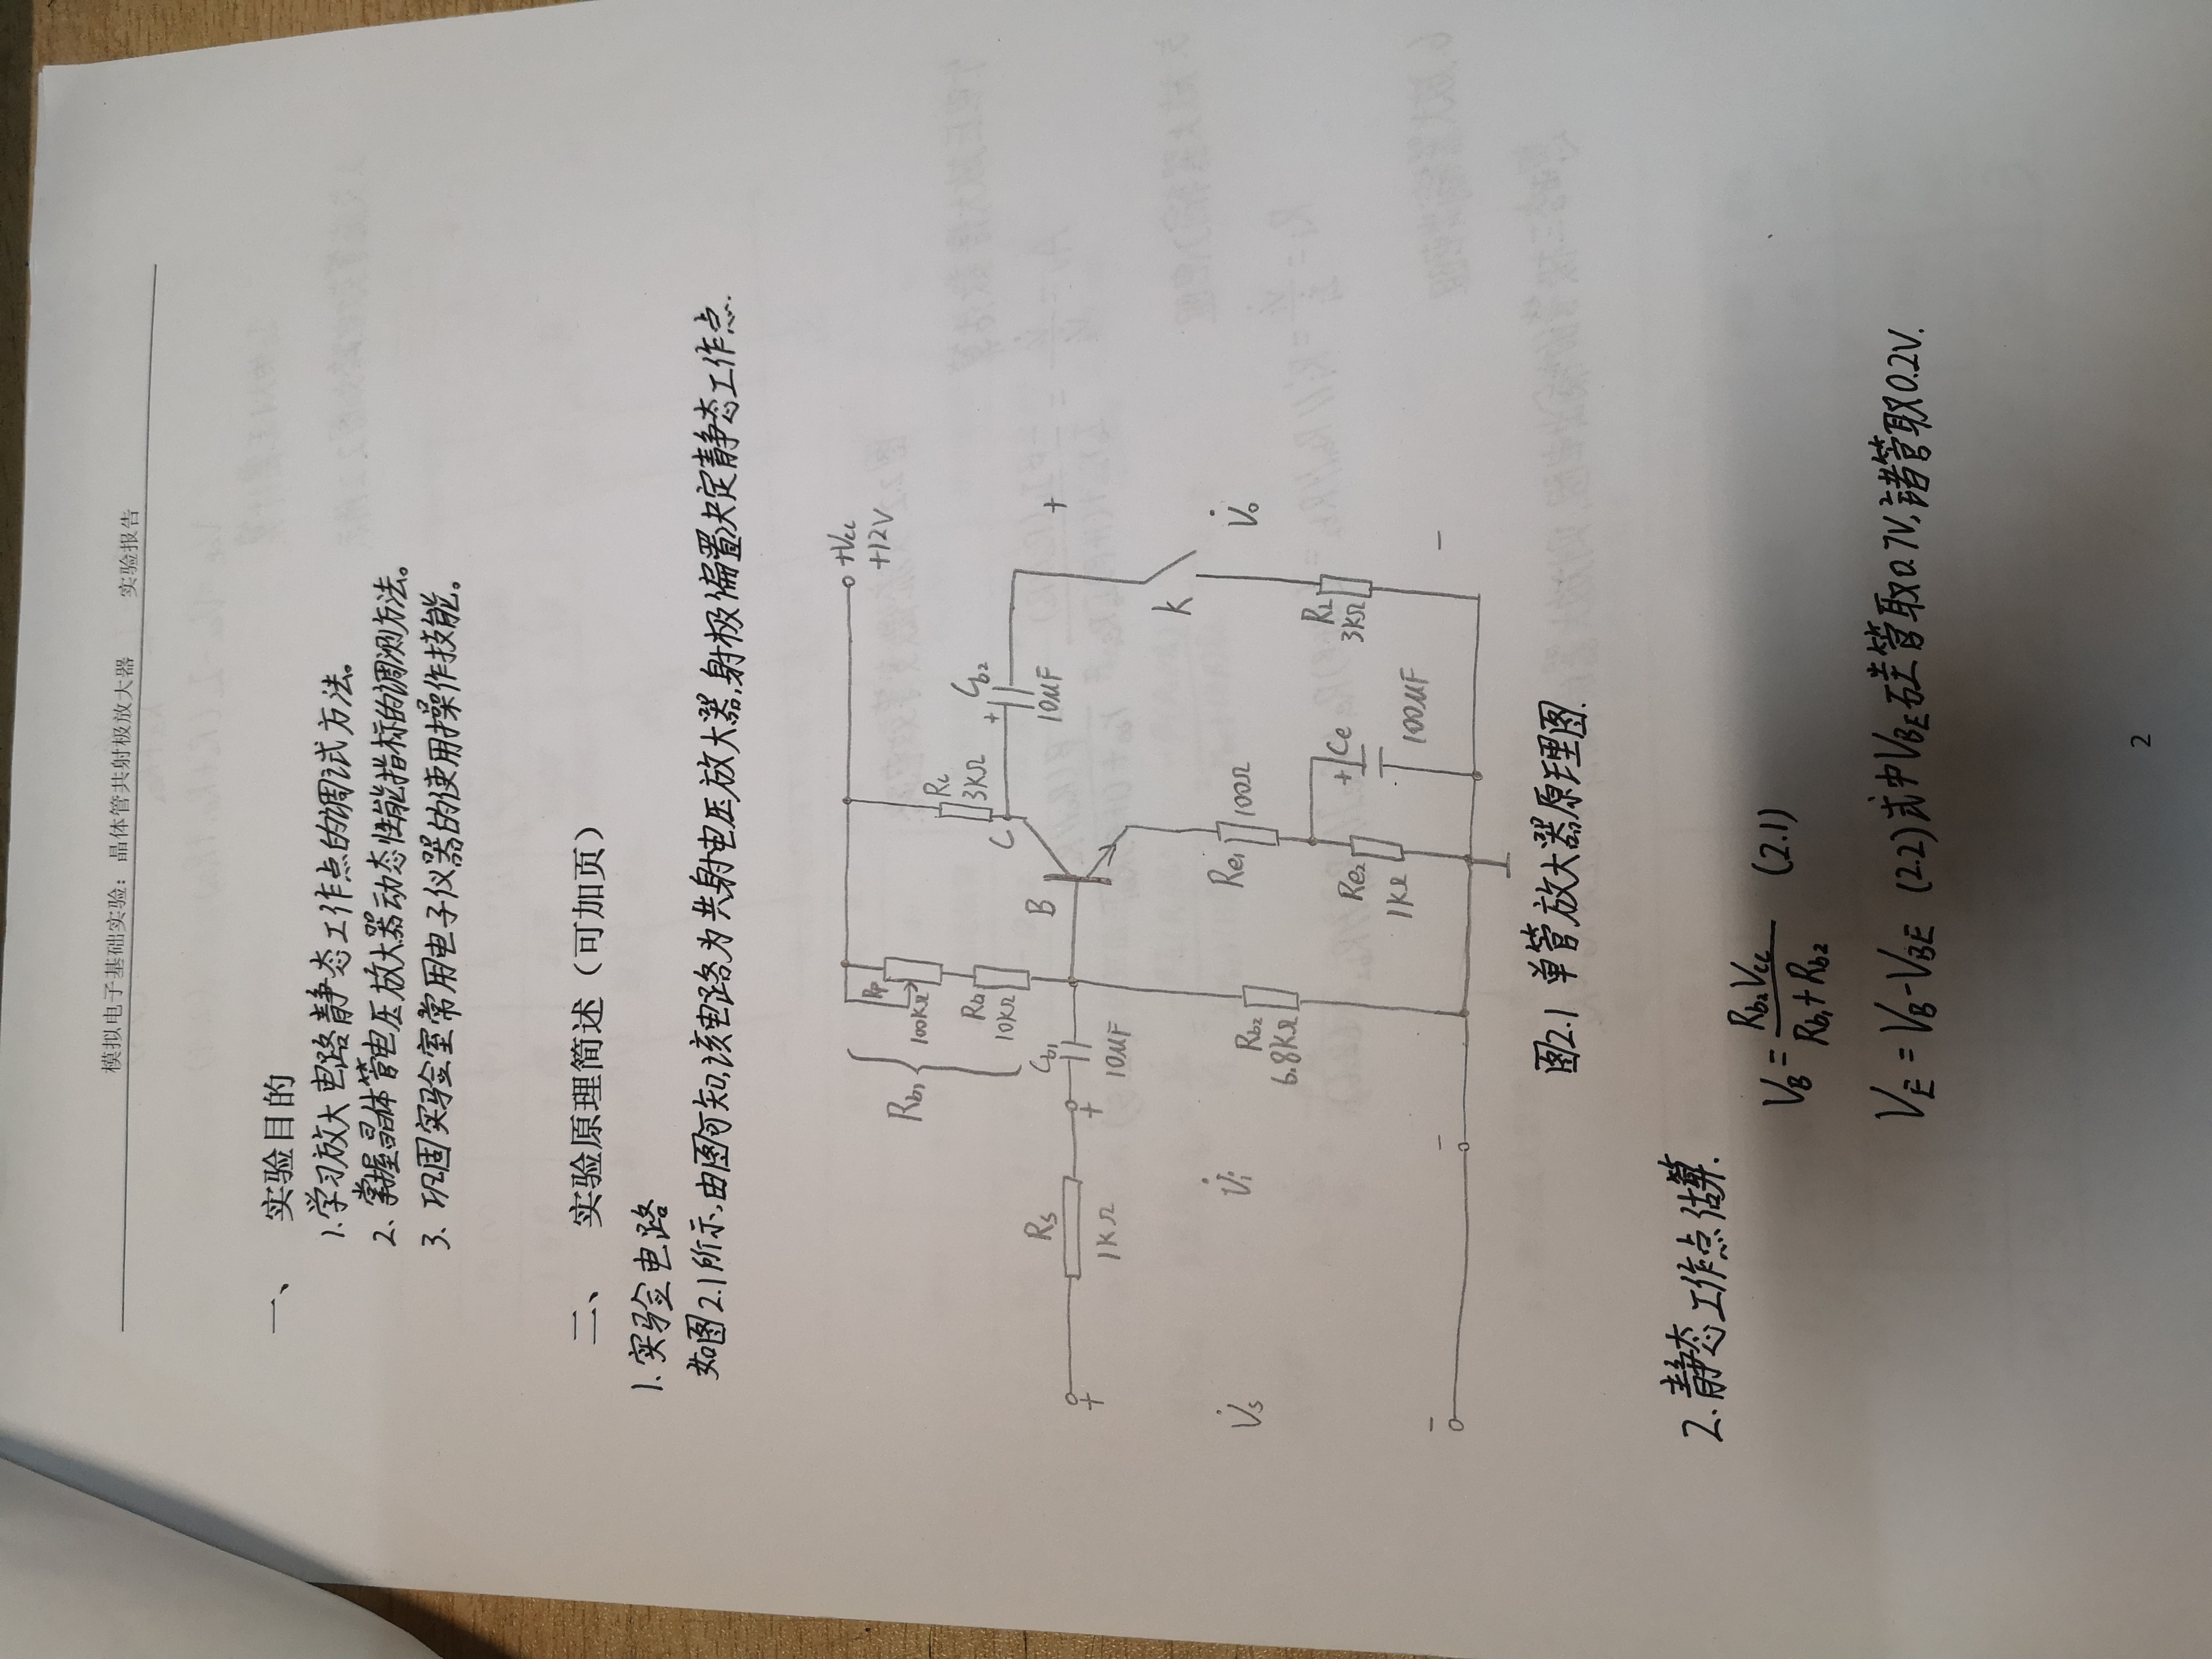 模拟电子基础实验：晶体管共射极放大器 实验报告
一、 实验目的
1.学习放大电路静态工作点的调试方法。
2.掌握晶体管电压放大器动态性能指标的调测方法。
3.巩固实验室常用电子仪器的使用操作技能。
二、 实验原理简述（可加页）
1.实验电路
如图2.1所示,由图可知,该电路为共射电压放大器,射极偏置决定静态工作点.
+Vcc
+12V
Rb1
Rp
100KΩ
Rb
10KΩ
Rc
3KΩ
C
+
Cb2
10μF
+
B
Cb1
10μF
+
Rs
1KΩ
+
K
V̇s
V̇i
Rb2
6.8KΩ
Re1
100Ω
V̇o
Re2
1KΩ
+
Ce
100μF
RL
3KΩ
-
-
-
图2.1 单管放大器原理图.
2.静态工作点估算.
VB = Rb2Vcc / Rb1+Rb2 (2.1)
VE = VB-VBE (2.2) 式中VBE硅管取0.7V,锗管取0.2V.
2